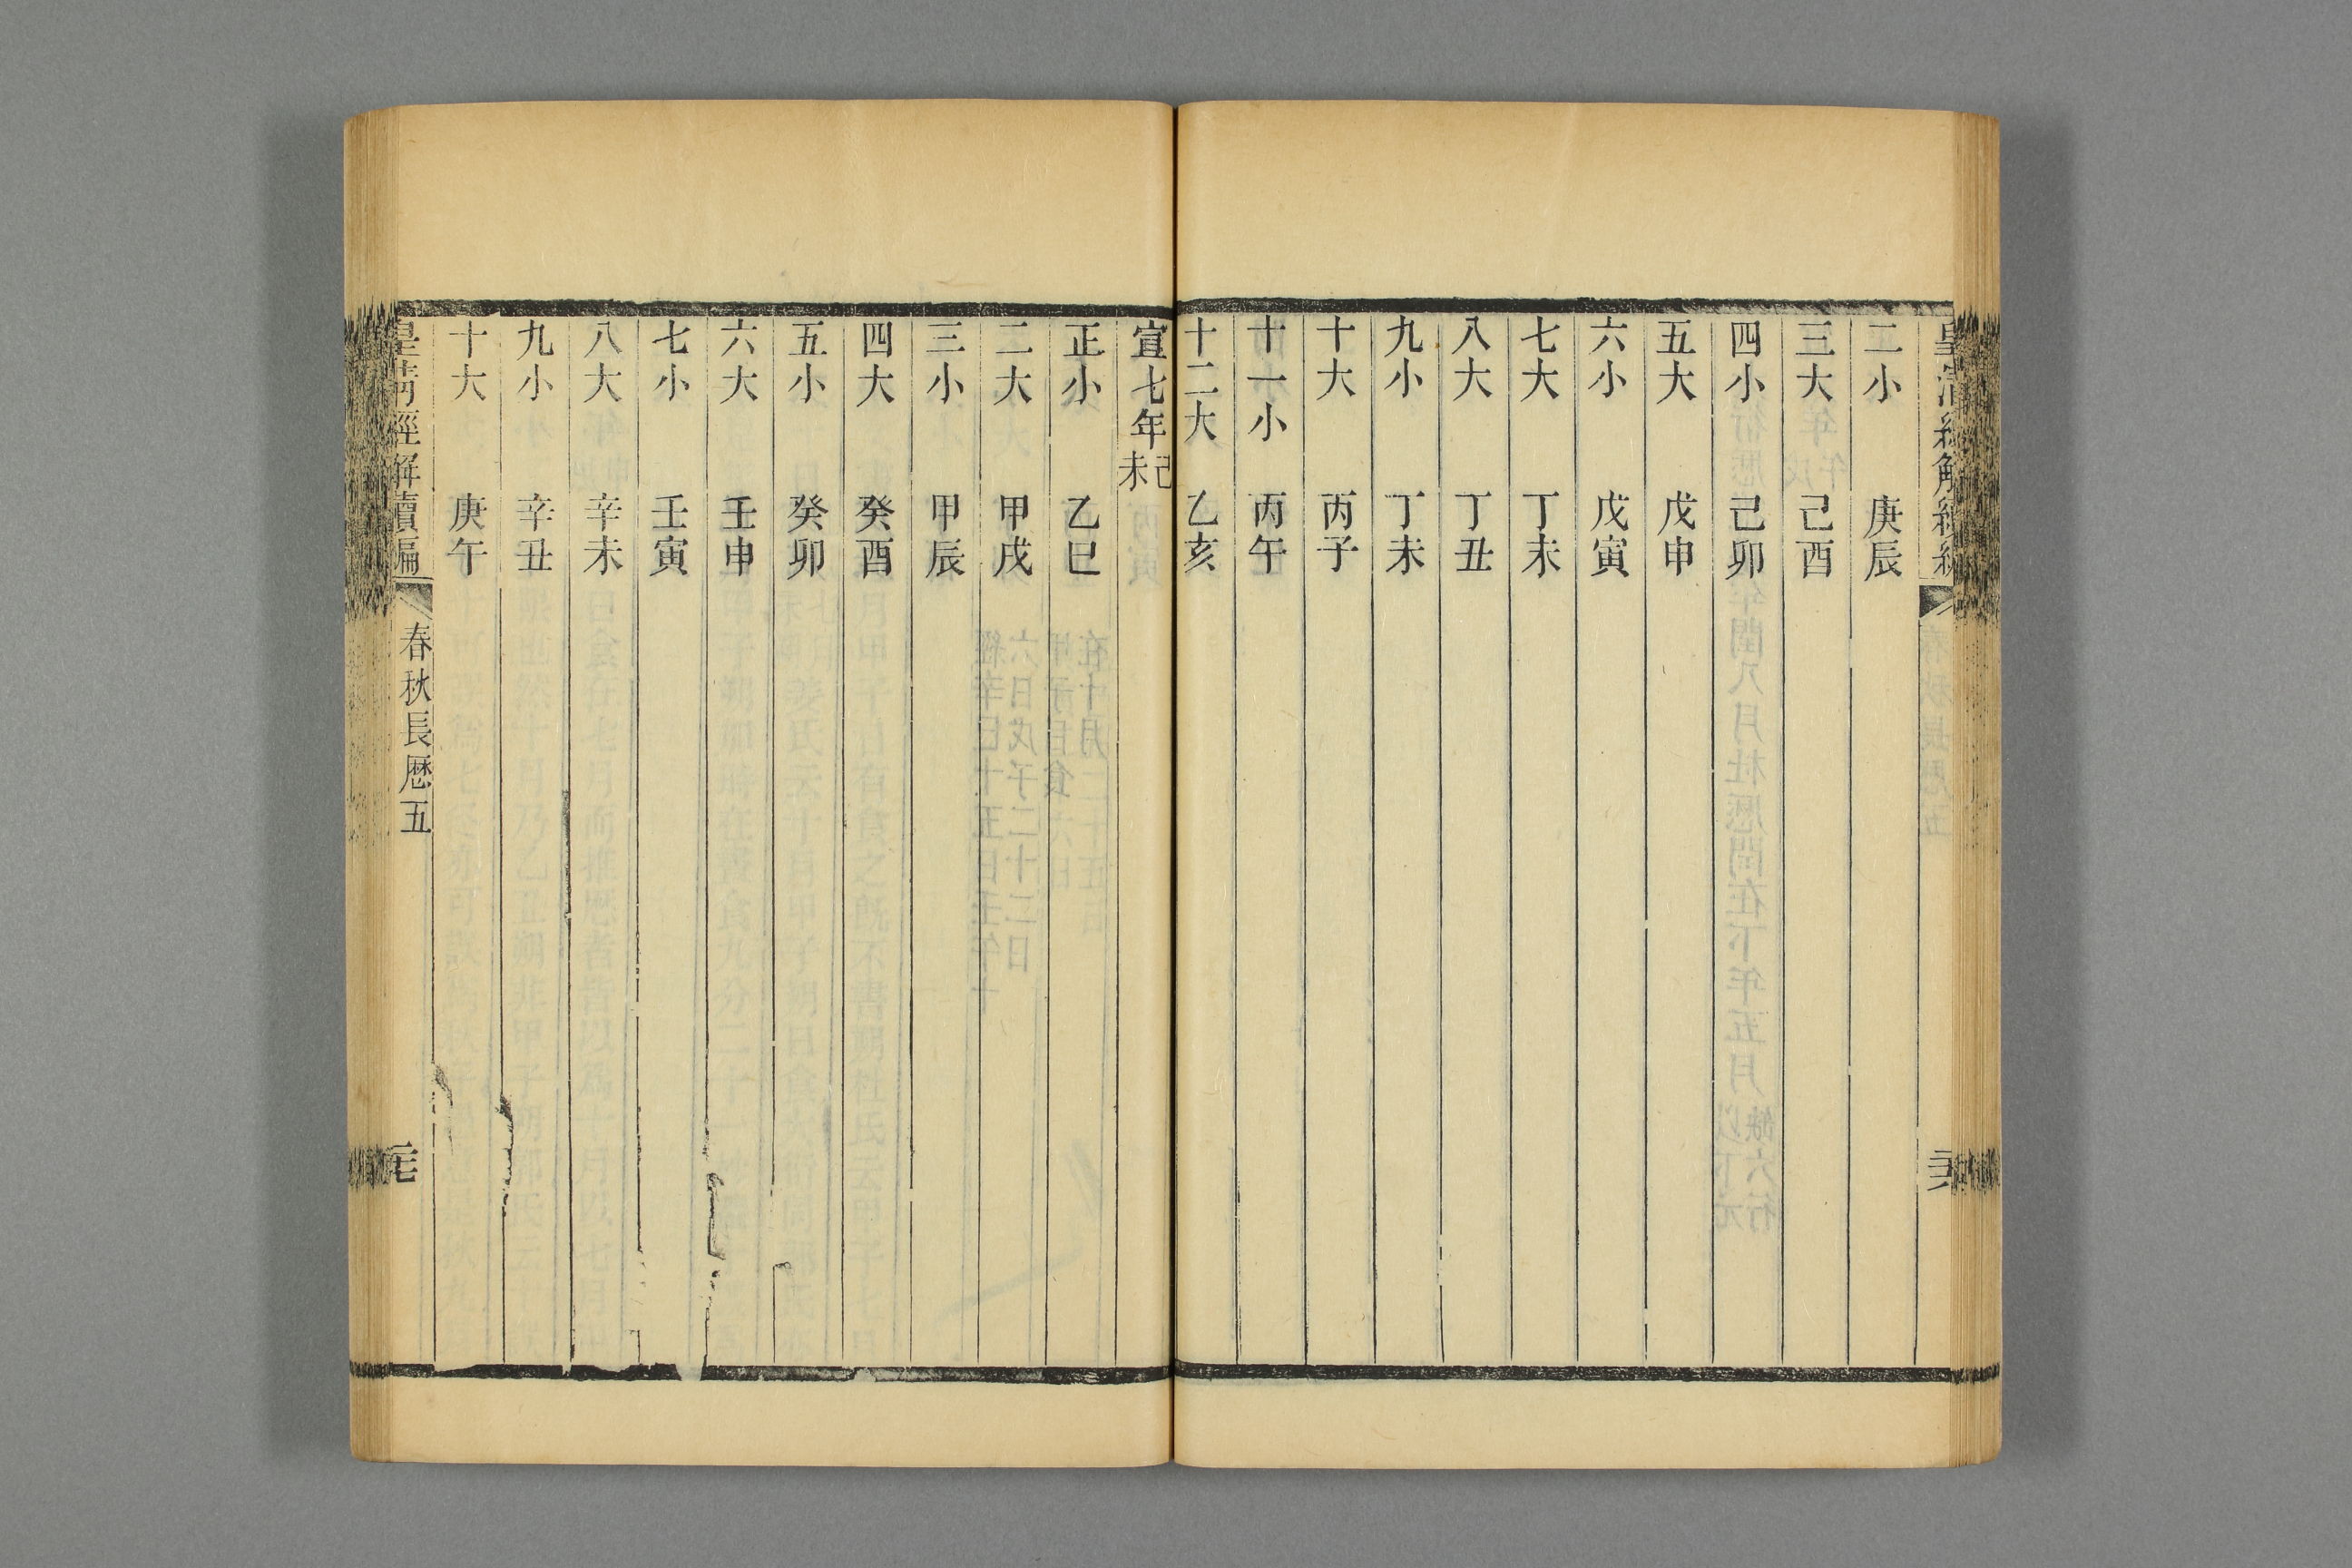 皇清經解續編
二小 庚辰
三大 己酉
四小 己卯
五大 戊申
六小 戊寅
七大 丁未
八大 丁丑
九小 丁未
十大 丙子
十一小 丙午
十二大 乙亥
宣七年己未
正小 乙巳
二大 甲戌
三小 甲辰
四大 癸酉
五小 癸卯
六大 壬申
七小 壬寅
八大 辛未
九小 辛丑
十大 庚午
皇清經解續編 春秋長厯五